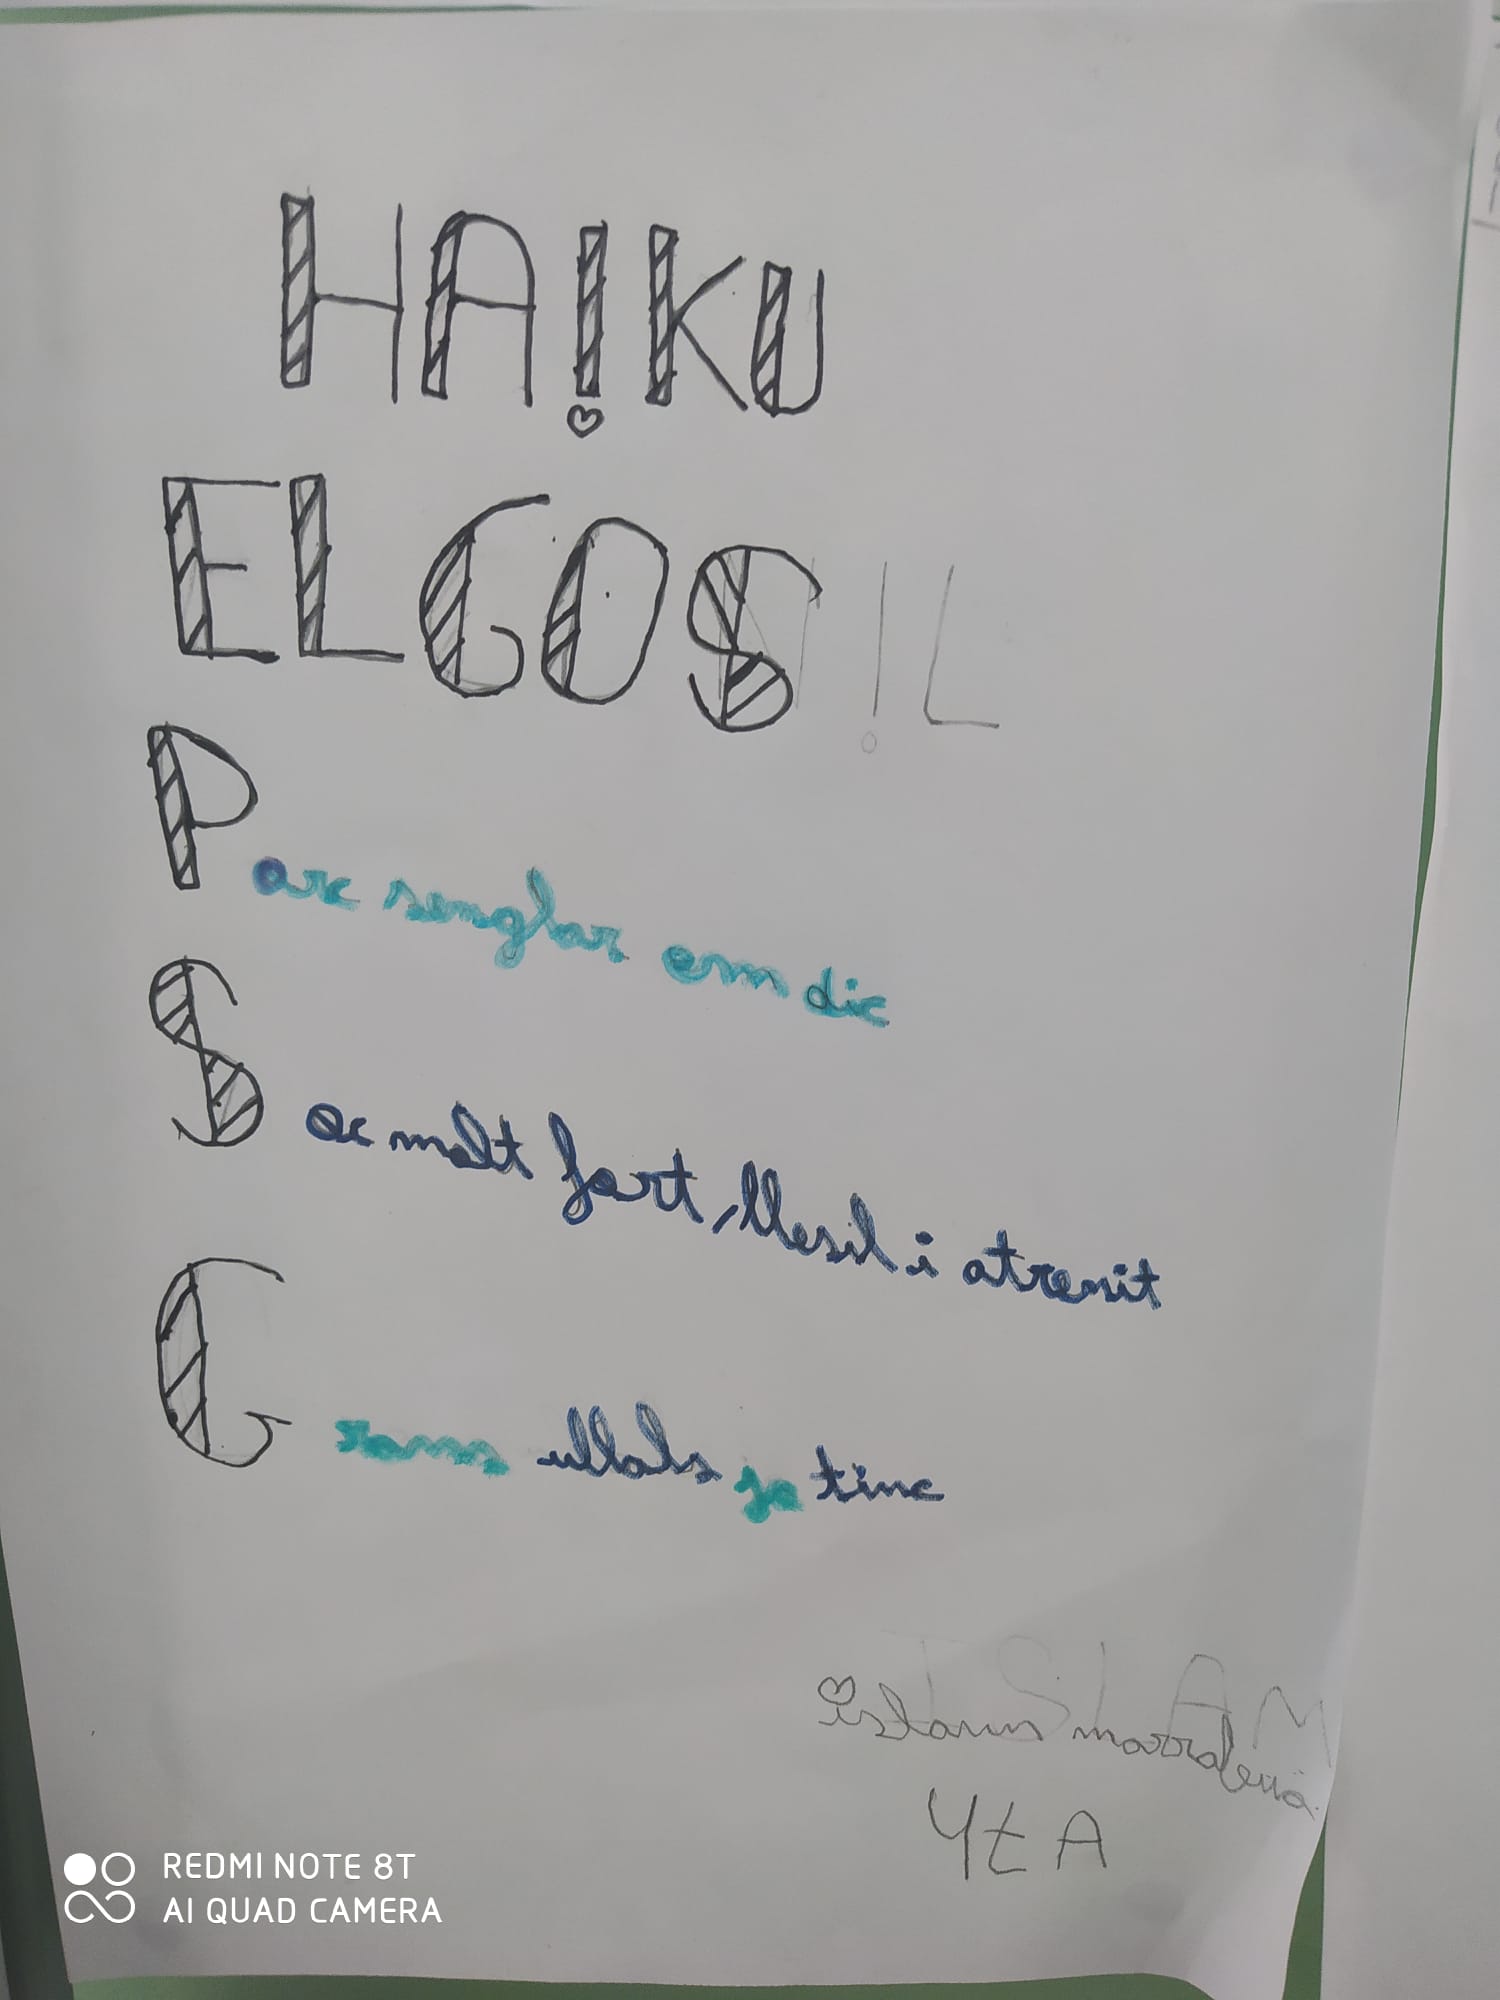 HAIKU
ELGOS
Porc senglar em dic
Soc molt fort, llesil i atrevit
Grans ullals ja tinc
ISLAM
islam
4t A
REDMI NOTE 8T
AI QUAD CAMERA